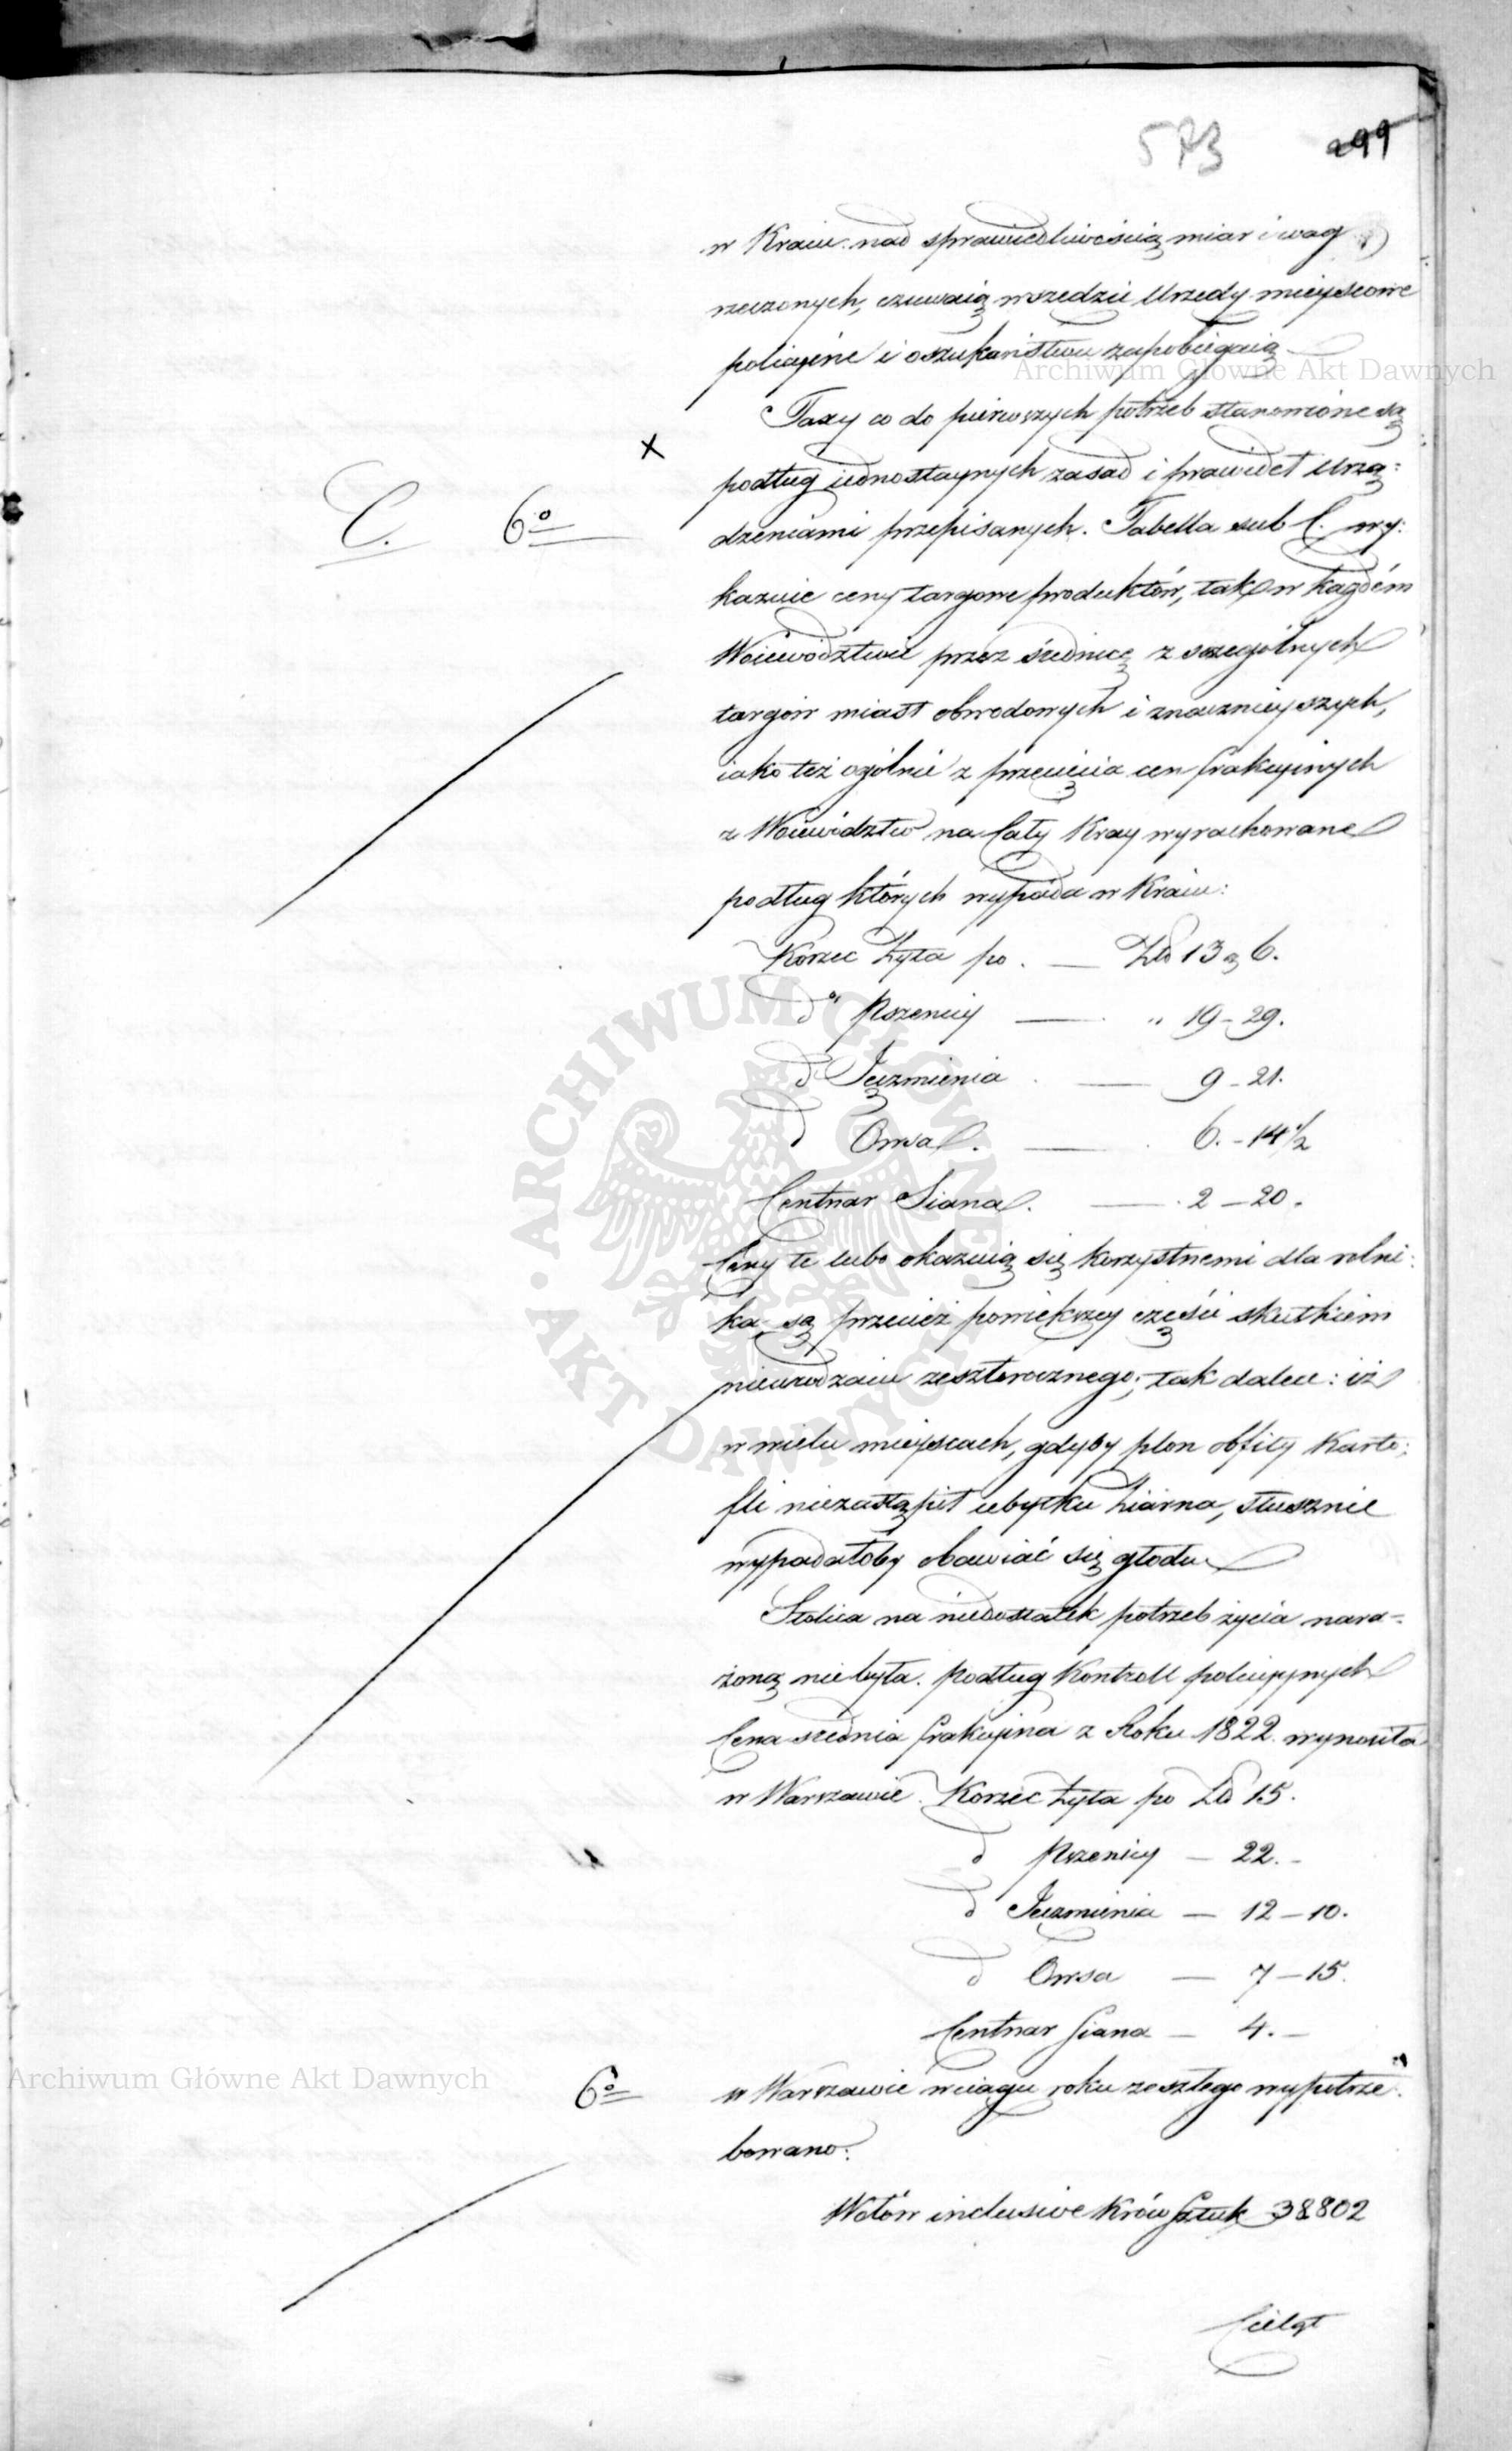 573 299
w Kraiu: nad sprawiedliwością miar i wag
rzeczonych, czuwaią wszędzie Urzędy mieyscowe
policyine i oszukaństwu zapobiegaią
Taxy co do pierwszych potrzeb stanowione są
X
podług iednostaynych zasad i prawideł Urzą:
C. 6o dzeniami przepisanych. Tabella sub C. wy:
kazuie ceny targowe produktów, tak w każdém
Woiewództwie przez średnicę z szczególnych
targów miast obwodowych i znacznieyszych,
iako też ogólnie z przecięcia cen frakcyinych
z Woiewództw na Cały Kray wyrachowane
podług których wypada w Kraiu:
Korzec żyta po . — Złt 13 g 6.
do Pszenicy — " 19 - 29.
d Jęczmienia — 9 - 21.
d Owsa . — 6. - 14 1/2
Centnar Siana . — 2 - 20.
Ceny te lubo okazuią się korzystnemi dla rolni:
ka są przecież powiększey części skutkiem
nieurodzaiu zeszłorocznego; tak dalece: iż
w wielu mieyscach, gdyby plon obfity Karto:
fli niezastąpił ubytku Ziarna, słusznie
wypadałoby obawiać się głodu
Stolica na niedostatek potrzeb życia nara-
żoną niebyła. Podług Kontroll policyynych
Cena srednia frakcyina z Roku 1822 wynosiła
w Warszawie Korzec żyta po Złt 15.
d Pszenicy — 22. -
d Jeczmienia — 12 - 10.
d Owsa — 7 - 15.
Centnar Siana — 4. -
6o w Warszawie wciągu roku zeszłego wypotrze:
bowano:
Wołów inclusive Krów Sztuk 38802
Cieląt
Archiwum Główne Akt Dawnych
Archiwum Główne Akt Dawnych
ARCHIWUM GŁÓWNE AKT DAWNYCH